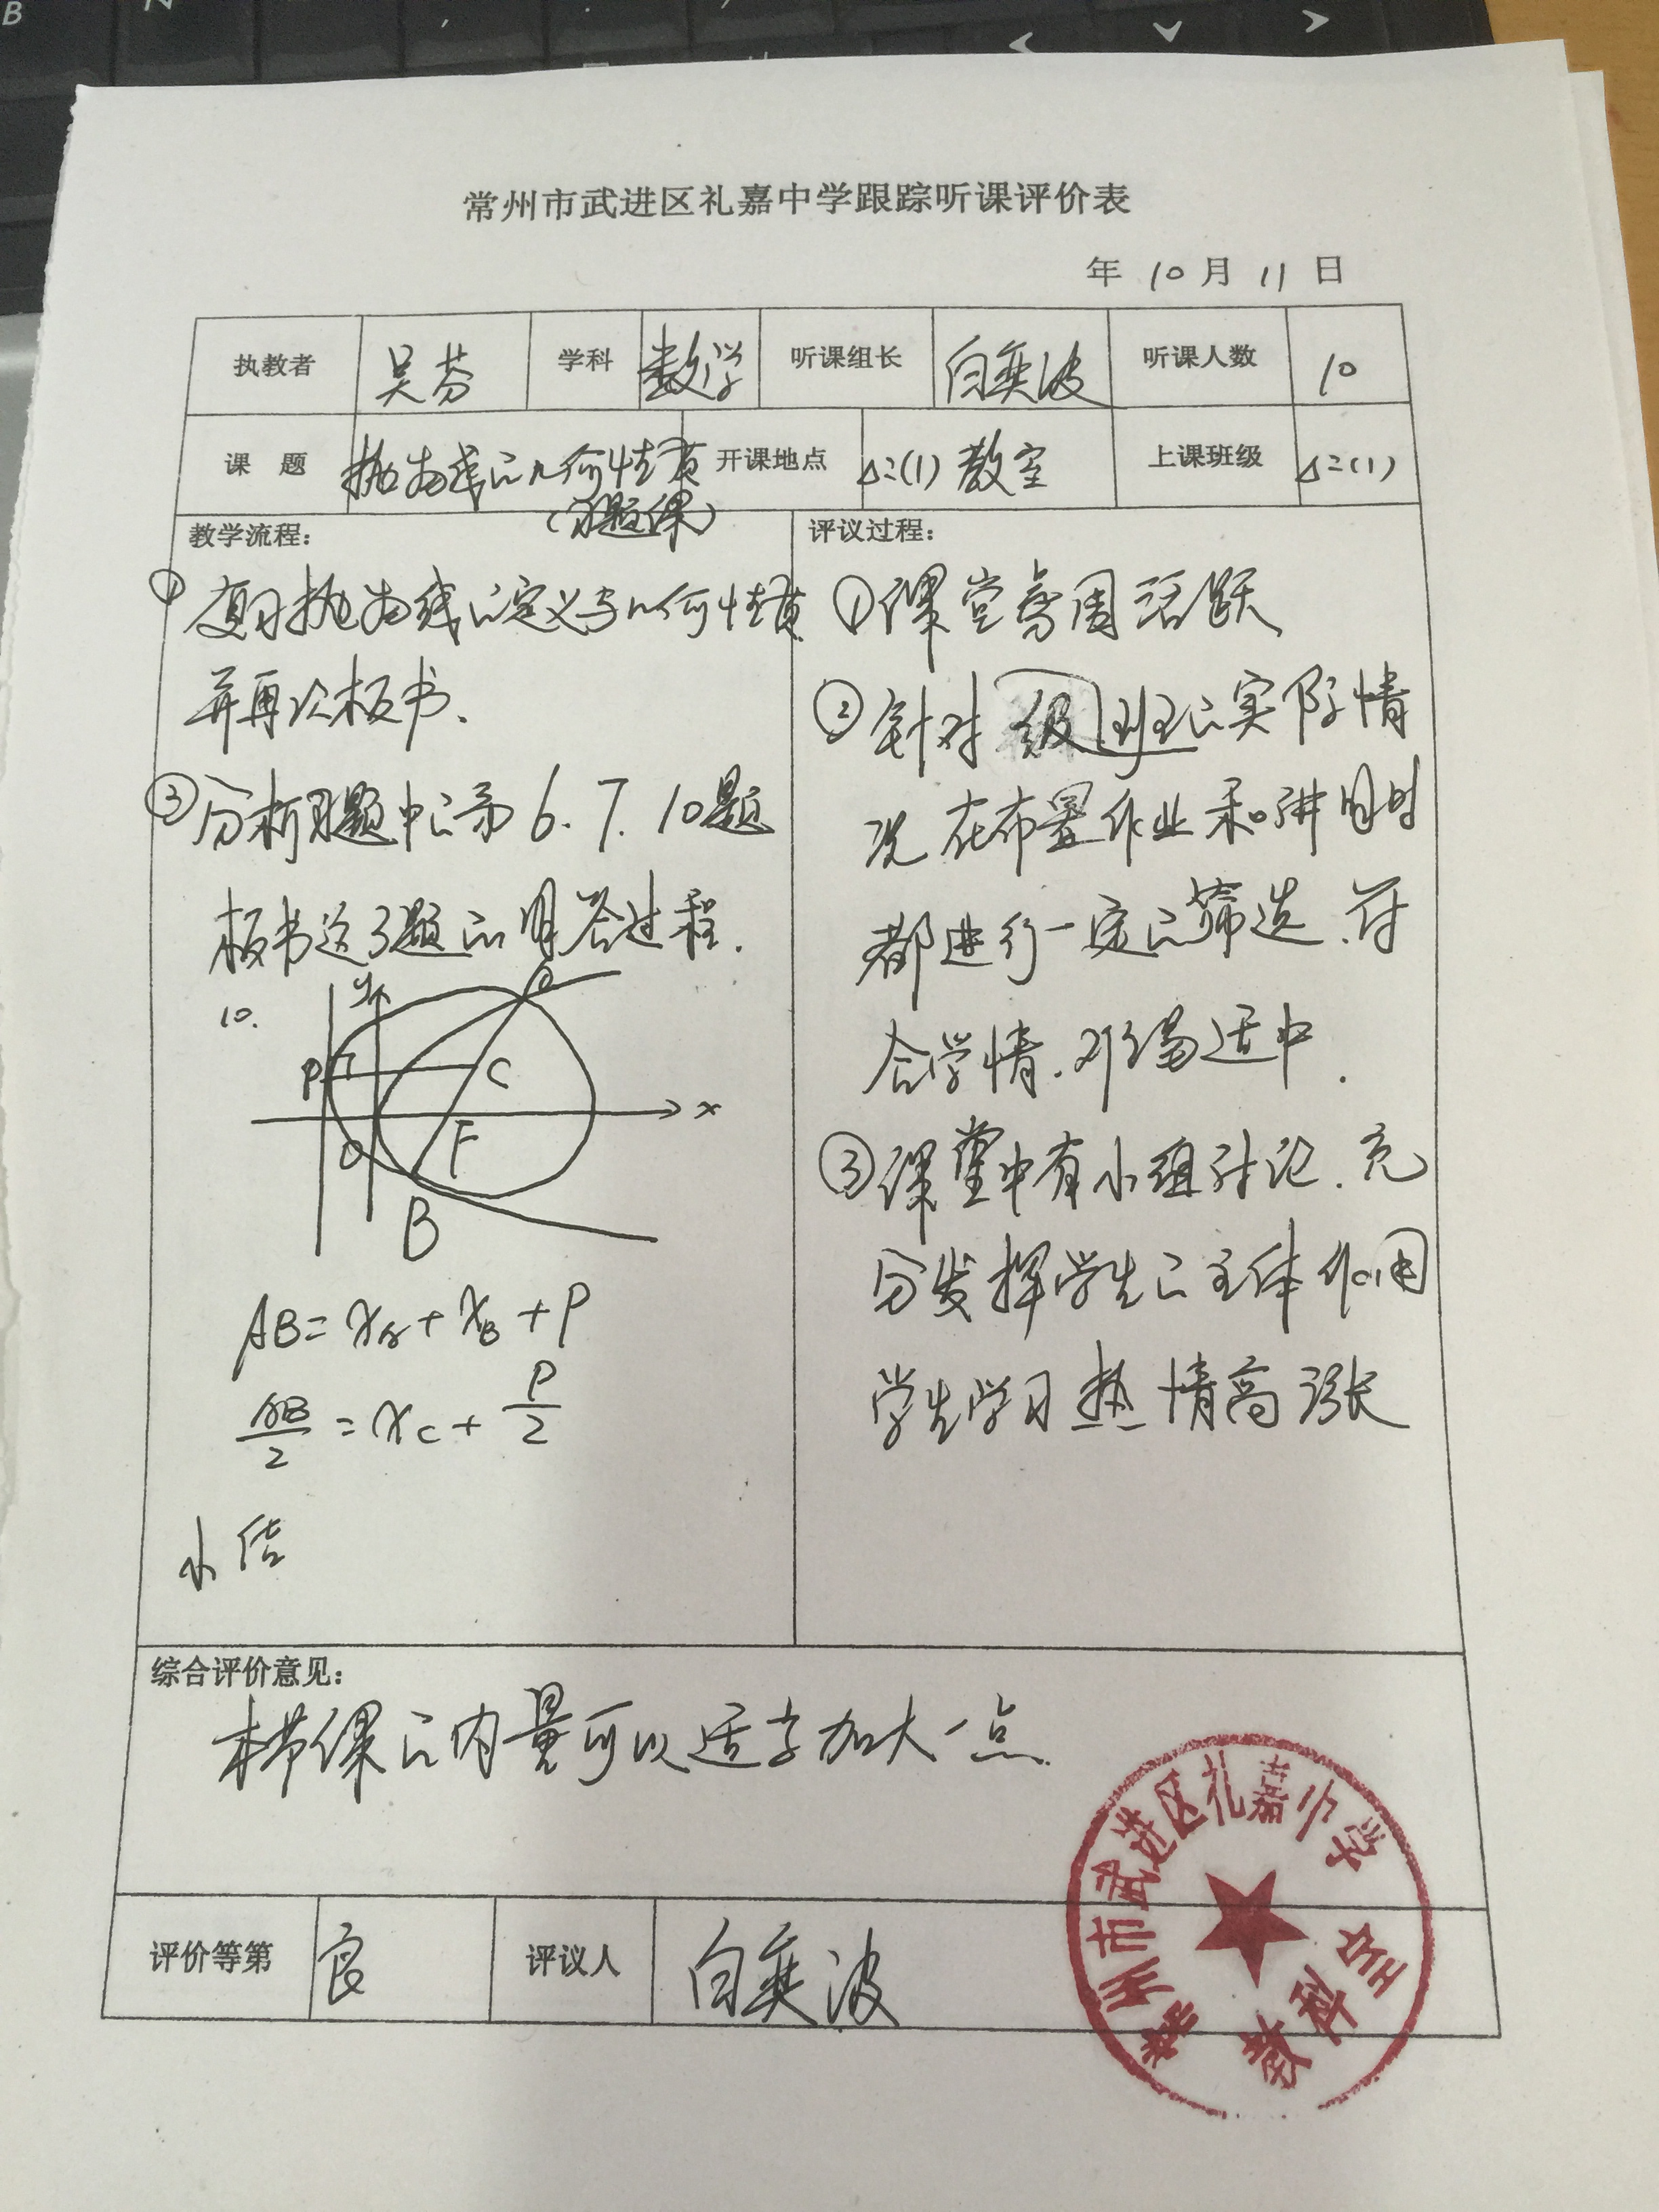 常州市武进区礼嘉中学跟踪听课评价表
年 10 月 11 日
执教者 吴芬 学科 数学 听课组长 白奕波 听课人数 10
课 题 抛物线的几何性质 开课地点 高二(1) 教室 上课班级 高二(1)
(习题课)
教学流程:
① 复习抛物线的定义与几何性质
并再次板书.
② 分析习题中的第 6. 7. 10题
板书这3题的解答过程.
10.
y
A
P
C
x
O
F
B
AB = xA + xB + P
AB/2 = xC + P/2
小结
评议过程:
①课堂氛围活跃
②针对 级班的实际情
况 在布置作业和讲解时
都进行一定的筛选.符
合学情.难易适中.
③课堂中有小组讨论.充
分发挥学生的主体作用
学生学习热情高涨
综合评价意见:
本节课的内量可以适当加大一点.
评价等第 良 评议人 白奕波
常州市武进区礼嘉中学
教科室